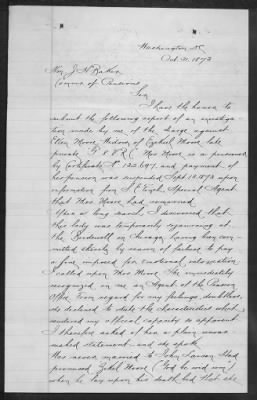 Washington DC
Oct. 31. 1873
Hon J. H. Baker
Comr of Pensions
Sir
I have the honor to
submit the following report of an investiga-
tion made by me of the charge against
Ellen Moore, Widow of Ezekiel Moore, late
private, V.R.C. Mrs Moore is a pensioner
by Certificate No 132.697, and payment of
her pension was suspended Sept. 10. 1873 upon
information from Special Agent
that Mrs. Moore had remarried
Upon a long search, I discovered that
this lady was temporarily sojourning at
the Bridewell in Chicago, having been com-
mitted thereby by reason of failure to pay
a fine imposed for occasional intoxication
I called upon Mrs Moore. She immediately
recognized in me an Agent of the Pension
Office. From regard for my feelings, doubtless,
she declined to state the characteristics which
rendered my official capacity so apparent.
I therefore asked of her a plain unvar-
nished statement and she spoke
Was never married to John Lawson. Had
promised Zekel Moore (God be wid him)
when he lay upon his death bed that she